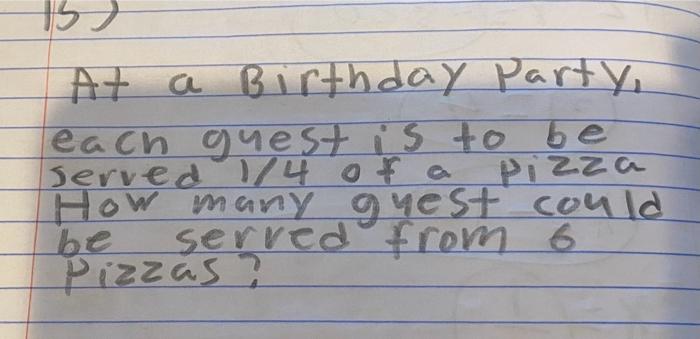 15)
At a Birthday Party,
each guest is to be
served 1/4 of a pizza
How many guest could
be served from 6
pizzas?